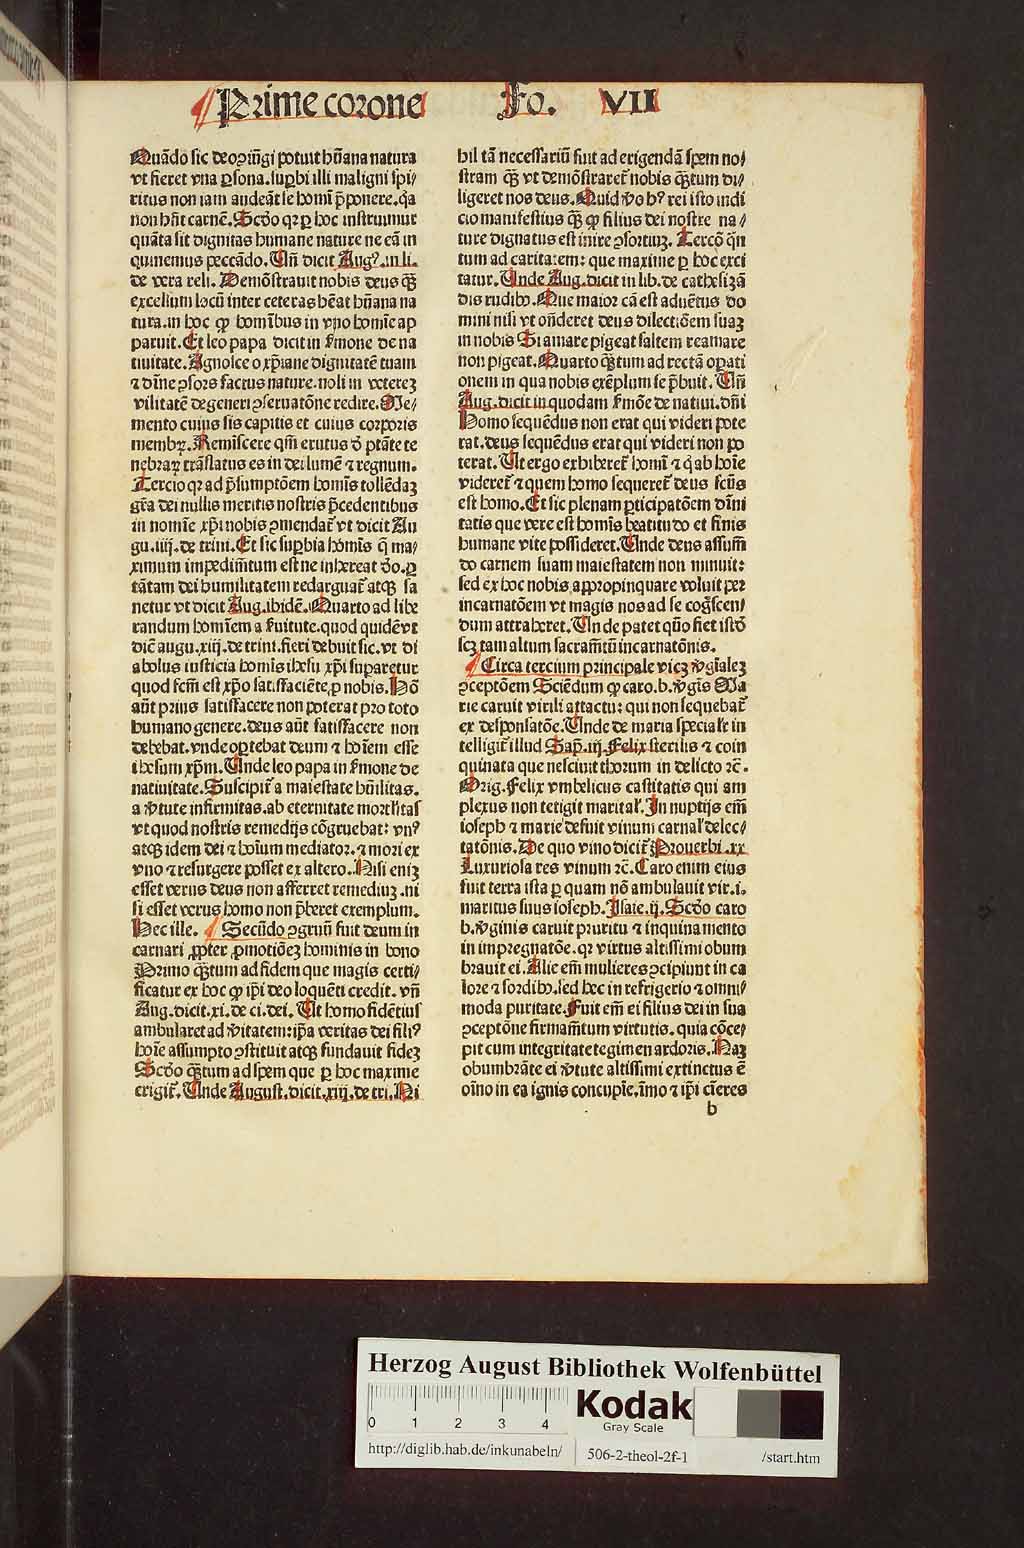 ¶ Prime corone Fo. VII
Quādo sic deo ꝯiūgi potuit hūana natura
vt fieret vna ꝑsona. suꝑbi illi maligni spi⸗
ritus non iam audeāt se homī p̄ponere. qa
non hn̄t carnē. Scd̓o qꝛ ꝑ hoc instruimur
quāta sit dignitas humane nature ne eā in
quinemus peccādo. Un̄ dicit Augꝰ. in li.
de vera reli. Demōstrauit nobis deus qꝫ̄
excelsum locū inter ceteras hēat hūana na
tura. in hoc ꝙ homībus in vno homīe ap
paruit. Et leo papa dicit in ẜmone de na
tiuitate. Agnosce o xp̄iane dignitatē tuam
⁊ diīne ꝯsors factus nature. noli in veterez
vilitatē degeneri ꝯseruatōne redire. Me⸗
mento cuius sis capitis et cuius corporis
membꝝ. Remīscere qm̄ erutus d̓ ptāte te
nebraꝝ trāslatus es in dei lumē ⁊ regnum.
Tercio qꝛ ad p̄sumptōem homīs tollēdaz
grā dei nullis meritis nostris p̄cedentibus
in nomīe xp̄i nobis ꝯmendat̄ vt dicit Au
gu. iiij. de trini. Et sic suꝑbia homīs q̄ ma⸗
ximum impedim̄tum est ne inhereat d̓o. ꝑ
tātam dei humilitatem redarguat̄ atqꝫ sa
netur vt dicit Aug. ibidē. Quarto ad libe
randum homīem a ẜuitute. quod quidē vt
diē augu. xiij. de trini. fieri debuit sic. vt di
abolus iusticia homīs ihesu xp̄i suparetur
quod fcm̄ est xp̄o satisfaciēte ꝓ nobis. Hō
aūt prius satisfacere non poterat pro toto
humano genere. deus aūt satisfacere non
debebat. vnde oꝑtebat deum ⁊ hoīem esse
ihesum xp̄m. Unde leo papa in ẜmone de
natiuitate. Suscipit̄ a maiestate hūilitas.
a v̓tute infirmitas. ab eternitate mortalitas
vt quod nostris remedijs cōgruebat: vnꝰ
atqꝫ idem dei ⁊ hoīum mediator. ⁊ mori ex
vno ⁊ resurgere posset ex altero. Nisi eniꝫ
esset verus deus non afferret remediuꝫ. ni
si esset verus homo non p̄beret exemplum.
Hec ille. ¶ Secūdo ꝯgruū fuit deum in
carnari ꝓpter ꝓmotiōeꝫ hominis in bono
Primo qꝫ̄tum ad fidem que magis certi⸗
ficatur ex hoc ꝙ ip̄i deo loquēti credit. vn̄
Aug. dicit. xi. de ci. dei. Ut homo fidētius
ambularet ad v̓itatem: ip̄a veritas dei filiꝰ
hoīe assumpto ꝯstituit atqꝫ fundauit fideꝫ
Scd̓o qꝫ̄tum ad spem que ꝑ hoc maxime
erigit̄. Unde August. dicit. xiij. de tri. Ni
hil tā necessariū fuit ad erigendā spem no⸗
stram qꝫ̄ vt demōstraret̄ nobis qꝫ̄tum di⸗
ligeret nos deus. Quid v̓o hꝰ rei isto indi
cio manifestius qꝫ̄ ꝙ filius dei nostre na⸗
ture dignatus est inire ꝯsortiuꝫ. Tercō q̄n
tum ad caritatem: que maxime ꝑ hoc exci
tatur. Unde Aug. dicit in lib. de cathesizā
dis rudibꝫ. Que maior cā est aduētus do
mini nisi vt on̄deret deus dilectiōem suaꝫ
in nobis Si amare pigeat saltem reamare
non pigeat. Quarto qꝫ̄tum ad rectā oꝑati
onem in qua nobis exēplum se p̄buit. Un̄
Aug. dicit in quodam ẜmōe de natiui. dn̄i
Homo sequēdus non erat qui videri pote
rat. deus sequēdus erat qui videri non po
terat. Ut ergo exhiberet̄ homī ⁊ q̓ ab hoīe
videret̄ ⁊ quem homo sequeret̄ deus fcūs
est homo. Et sic plenam ꝑticipatōem diīni
tatis que vere est homīs beatitudo et finis
humane vite possideret. Unde deus assum̄
do carnem suam maiestatem non minuit:
sed ex hoc nobis appropinquare voluit per
incarnatōem vt magis nos ad se cog̓scen⸗
dum attraheret. Unde patet qūo fiet istō
scꝫ tam altum sacram̄tū incarnatōnis.
¶ Circa tercium principale vicꝫ v̓gīalez
ꝯceptōem Sciēdum ꝙ caro. b. v̓gīs Ma
rie caruit virili attactu: qui non sequebat̄
ex desponsatōe. Unde de maria speciale in
telligit̄ illud Sap̄. iij. Felix sterilis ⁊ coin
quinata que nesciuit thorum in delicto ⁊c̄.
Orig. Felix vmbelicus castitatis qui am
plexus non tetigit marital̓. In nuptijs em̄
ioseph ⁊ marie defuit vinum carnal̓ delec⸗
tatōnis. De quo vino dicit̄ Prouerbi. xx
Luxuriosa res vinum ⁊c̄. Caro enim eius
fuit terra ista ꝑ quam nō ambulauit vir. i.
maritus suus ioseph. Isaie. ij. Scd̓o caro
b. v̓ginis caruit pruritu ⁊ inquinamento
in impregnatōe. qꝛ virtus altissimi obum
brauit ei. Alie em̄ mulieres ꝯcipiunt in ca
lore ⁊ sordibꝫ. sed hec in refrigerio ⁊ omni⸗
moda puritate. Fuit em̄ ei filius dei in sua
ꝯceptōne firmam̄tum virtutis. quia cōce⸗
pit cum integritate tegimen ardoris. Naꝫ
obumbrāte ei v̓tute altissimi extinctus ē
oīno in ea ignis concupīe. īmo ⁊ ip̄i cīeres
b
Herzog August Bibliothek Wolfenbüttel
0 1 2 3 4
Kodak
Gray Scale
http://diglib.hab.de/inkunabeln/ 506-2-theol-2f-1 /start.htm